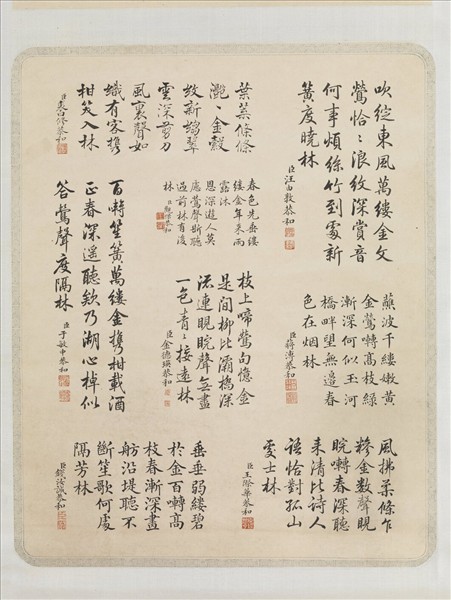 吹綻東風萬縷金文
鶯恰恰浪紋深賞音
何事煩絲竹到處新
簧度曉林
臣汪由敦恭和
葉葉條條
灔灔金縠
紋新翠
雲深剪刀
風裏聲如
織有客攜
柑笑入林
臣裘曰修恭和
蘸波千縷嫩黃
金鶯轉高枝綠
漸深何似玉河
橋畔望無邊春
色在烟林
臣蔣溥恭和
春色先垂縷
縷金年來雨
露沐
恩深遊人莫
處鶯聲斷聽
過前林有後
林
臣觀保恭和
枝上啼鶯句憶金
是間柳比灞橋深
流連睍睆聲無盡
一色青青接遠林
臣金德瑛恭和
百囀笙簧萬縷金攜柑載酒
正春深遥聽欸乃湖心棹似
答鶯聲度隔林
臣于敏中恭和
風拂柔條乍
糝金數聲睍
睆囀春深聽
來清比詩人
語恰對孤山
處士林
臣王際華恭和
垂垂弱縷碧
於金百囀高
枝春漸深畫
舫沿堤聽不
斷笙歌何處
隔芳林
臣錢汝誠恭和